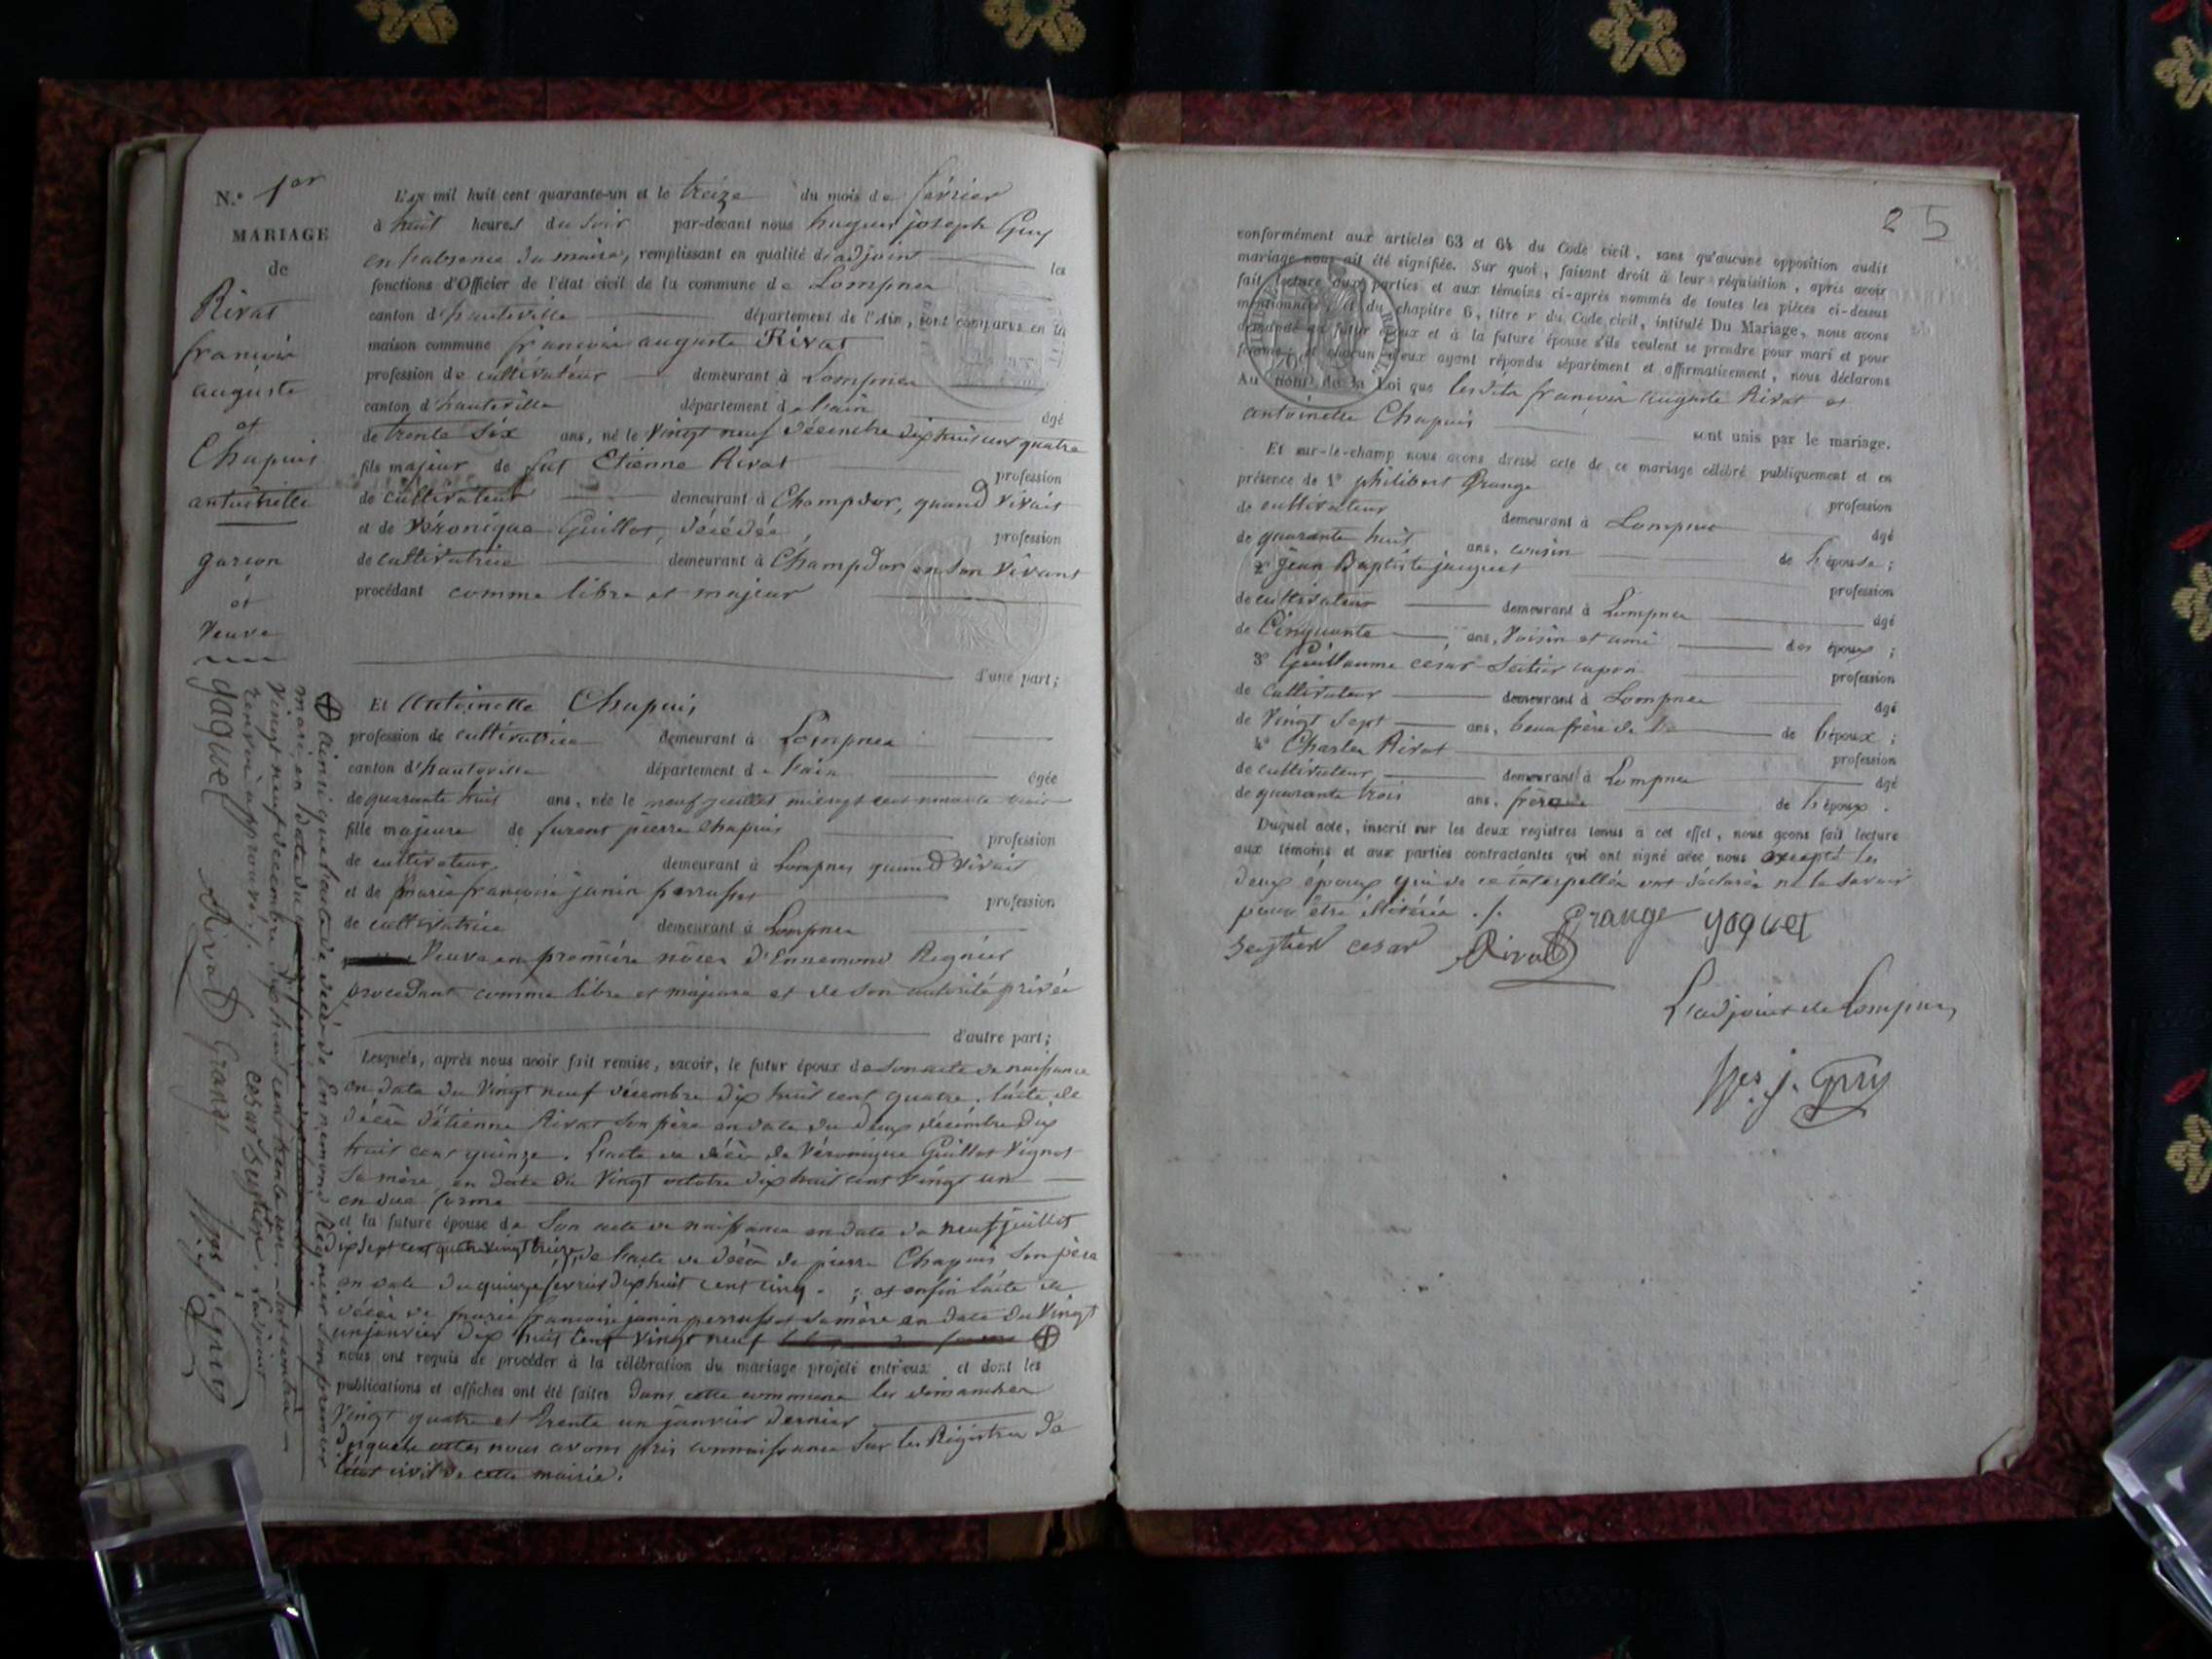 N.° 1er
MARIAGE
de
Rivat
françois
auguste
et
Chapuis
antoinette
garçon
et
Veuve
L'an mil huit cent quarante-un et le treize du mois de février
à huit heures du soir par-devant nous hugues joseph Guy
en l'absence du maire, remplissant en qualité d'adjoint les
fonctions d'Officier de l'état civil de la commune de Lompnes
canton d'hauteville département de l'Ain, sont comparus en la
maison commune françois auguste Rivat
profession de cultivateur demeurant à Lompnes
canton d'hauteville département de l'ain âgé
de trente six ans, né le Vingt neuf décembre dix huit cent quatre
fils majeur de fut Etienne Rivat profession
de cultivateur demeurant à Champdor, quand vivait
et de Véronique Guillot, décédée, profession
de cultivatrice demeurant à Champdor en son vivant
procédant comme libre et majeur
d'une part;
Et Antoinette Chapuis
profession de cultivatrice demeurant à Lompnes
canton d'hauteville département de l'ain âgée
de quarante huit ans, née le neuf juillet
fille majeure de furent pierre Chapuis profession
de cultivateur demeurant à Lompnes quand vivait
et de marie françoise janin perrusset profession
de cultivatrice demeurant à Lompnes
Veuve en première nôces d'Ennemond Régnier
procédant comme libre et majeure et de son autorité privée
d'autre part;
Lesquels, après nous avoir fait remise, savoir, le futur époux de son acte de naissance
en date du Vingt neuf décembre dix huit cent quatre, l'acte de
décès d'étienne Rivat son père en date du deux décembre dix
huit cent quinze. L'acte de décès de Véronique Guillot Vignot
sa mère, en date du Vingt octobre dix huit cent vingt un
en due forme
et la future épouse de Son acte de naissance en date du neuf juillet
dix sept cent quatre vingt treize, de l'acte de décès de pierre Chapuis, son père
en date du quinze fevrier dix huit cent cinq. ; et enfin l'acte de
décès de marie françoise janin perrusset sa mère en date du Vingt
un janvier dix huit cent vingt neuf ⊕
nous ont requis de procéder à la célébration du mariage projeté entr'eux et dont les
publications et affiches ont été faites dans cette commune les dimanches
Vingt quatre et trente un janvier dernier
desquels actes nous avons pris connaissance sur les Régistres de
l'état civil de cette mairie.
⊕ ainsi que l'acte de décès de Ennemond Régnier son premier
mari, en date du
Vingt neuf décembre dix huit cent trente un
renvoi approuvé
yaquet Rivat Grange cesar seytier L'adjoint
hges j. Guy
25
conformément aux articles 63 et 64 du Code civil, sans qu'aucune opposition audit
mariage nous ait été signifiée. Sur quoi, faisant droit à leur réquisition, après avoir
fait lecture aux parties et aux témoins ci-après nommés de toutes les pièces ci-dessus
mentionnées, et du chapitre 6, titre v du Code civil, intitulé Du Mariage, nous avons
demandé au futur époux et à la future épouse s'ils veulent se prendre pour mari et pour
femme; et chacun d'eux ayant répondu séparément et affirmativement, nous déclarons
Au nom de la Loi que lesdits françois auguste Rivat et
antoinette Chapuis sont unis par le mariage.
Et sur-le-champ nous avons dressé acte de ce mariage célébré publiquement et en
présence de 1° philibert Grange profession
de cultivateur demeurant à Lompnes âgé
de quarante huit ans, cousin de l'épouse;
2° jean Baptiste jacquet profession
de cultivateur demeurant à Lompnes âgé
de Cinquante ans, Voisin et ami des époux;
3° Guillaume césar Seitier capon profession
de Cultivateur demeurant à Lompnes âgé
de Vingt Sept ans, beau frère de de l'époux;
4° Charles Rivat profession
de cultivateur demeurant à Lompnes âgé
de quarante trois ans, frère de l'époux.
Duquel acte, inscrit sur les deux registres tenus à cet effet, nous avons fait lecture
aux témoins et aux parties contractantes qui ont signé avec nous excepté les
deux époux qui de ce interpellés ont déclarés ne le savoir
pour être illitérés ./.
Grange yaquet
seytier cesar Rivat
L'adjoint de Lompnes
hges. j. Guy